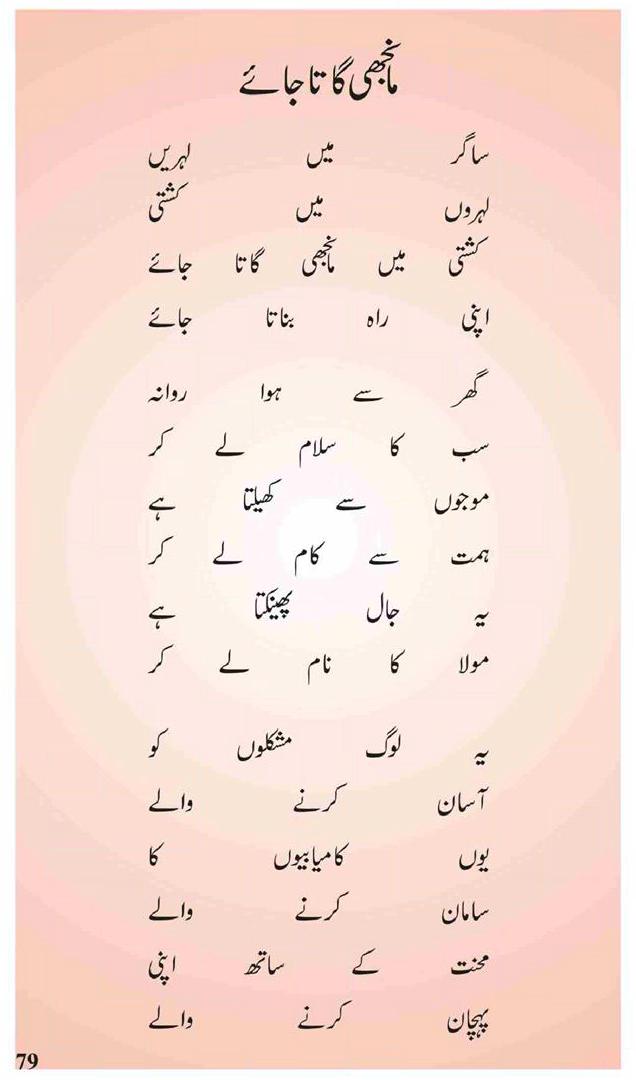 مانجھی گاتا جائے
ساگر میں لہریں
لہروں میں کشتی
کشتی میں مانجھی گاتا جائے
اپنی راہ بناتا جائے
گھر سے ہوا روانہ
سب کا سلام لے کر
موجوں سے کھیلتا ہے
ہمت سے کام لے کر
یہ جال پھینکتا ہے
مولا کا نام لے کر
یہ لوگ مشکلوں کو
آسان کرنے والے
یوں کامیابیوں کا
سامان کرنے والے
محنت کے ساتھ اپنی
پہچان کرنے والے
79